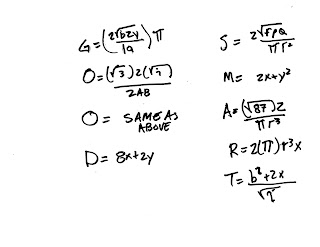 G = (2√b2y / 1a) π
O = (√3) 2(√9) / 2AB
O = SAME AS ABOVE
D = 8x+2y
S = 2√fpQ / πr²
M = 2x+y²
A = (√87) 2 / πr³
R = 2(π) r³x
T = b²+2x / √9